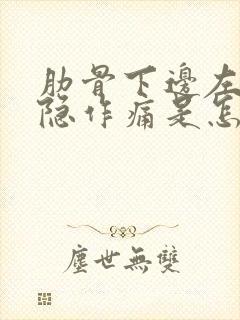 肋骨下邊左
隐作痛是怎
塵世無雙